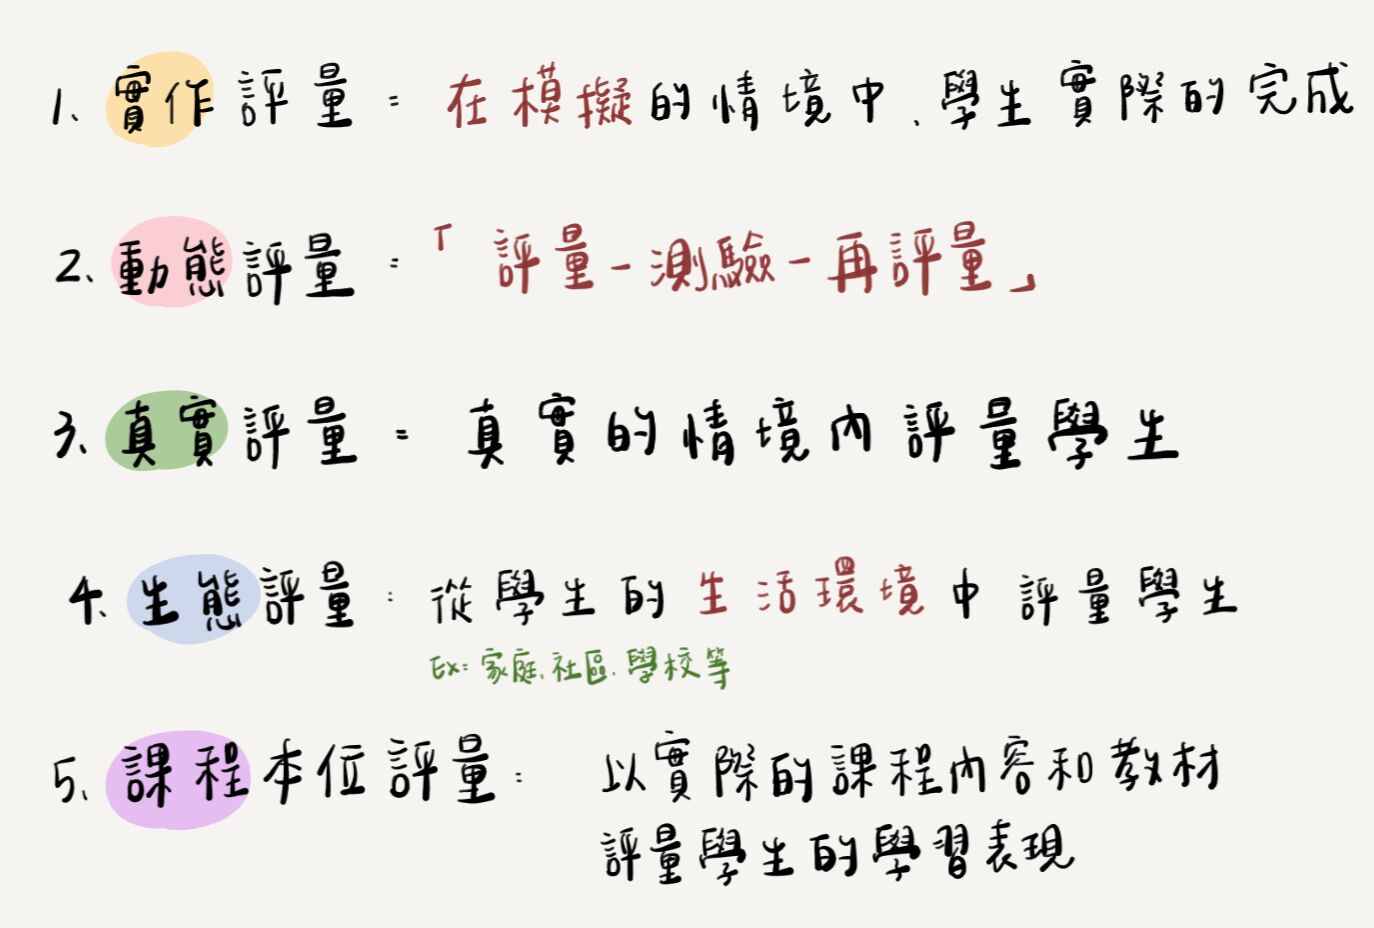 1、實作評量：在模擬的情境中、學生實際的完成
2、動態評量：「評量-測驗-再評量」
3、真實評量：真實的情境內評量學生
4、生態評量：從學生的生活環境中評量學生
Ex：家庭、社區、學校等
5、課程本位評量：以實際的課程內容和教材
評量學生的學習表現